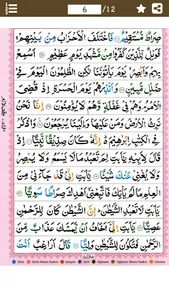 6 /12
صِرَاطٌ مُّسْتَقِيْمٌ ۝ فَاخْتَلَفَ الْاَحْزَابُ مِنْۢ بَيْنِهِمْ ۚ
فَوَيْلٌ لِّلَّذِيْنَ كَفَرُوْا مِنْ مَّشْهَدِ يَوْمٍ عَظِيْمٍ ۝ اَسْمِعْ
بِهِمْ وَاَبْصِرْ ۙ يَوْمَ يَاْتُوْنَنَا لٰكِنِ الظّٰلِمُوْنَ الْيَوْمَ فِيْ
ضَلٰلٍ مُّبِيْنٍ ۝ وَاَنْذِرْهُمْ يَوْمَ الْحَسْرَةِ اِذْ قُضِيَ
الْاَمْرُ ۘ وَهُمْ فِيْ غَفْلَةٍ وَّهُمْ لَا يُؤْمِنُوْنَ ۝ اِنَّا نَحْنُ
نَرِثُ الْاَرْضَ وَمَنْ عَلَيْهَا وَاِلَيْنَا يُرْجَعُوْنَ ۝ وَاذْكُرْ
فِي الْكِتٰبِ اِبْرٰهِيْمَ ۬ اِنَّهٗ كَانَ صِدِّيْقًا نَّبِيًّا ۝ اِذْ
قَالَ لِاَبِيْهِ يٰٓاَبَتِ لِمَ تَعْبُدُ مَا لَا يَسْمَعُ وَلَا
يُبْصِرُ وَلَا يُغْنِيْ عَنْكَ شَيْـًٔا ۝ يٰٓاَبَتِ اِنِّيْ قَدْ جَآءَنِيْ مِنَ
الْعِلْمِ مَا لَمْ يَاْتِكَ فَاتَّبِعْنِيْٓ اَهْدِكَ صِرَاطًا سَوِيًّا ۝
يٰٓاَبَتِ لَا تَعْبُدِ الشَّيْطٰنَ ؕ اِنَّ الشَّيْطٰنَ كَانَ لِلرَّحْمٰنِ
عَصِيًّا ۝ يٰٓاَبَتِ اِنِّيْٓ اَخَافُ اَنْ يَّمَسَّكَ عَذَابٌ مِّنَ
الرَّحْمٰنِ فَتَكُوْنَ لِلشَّيْطٰنِ وَلِيًّا ۝ قَالَ اَرَاغِبٌ اَنْتَ